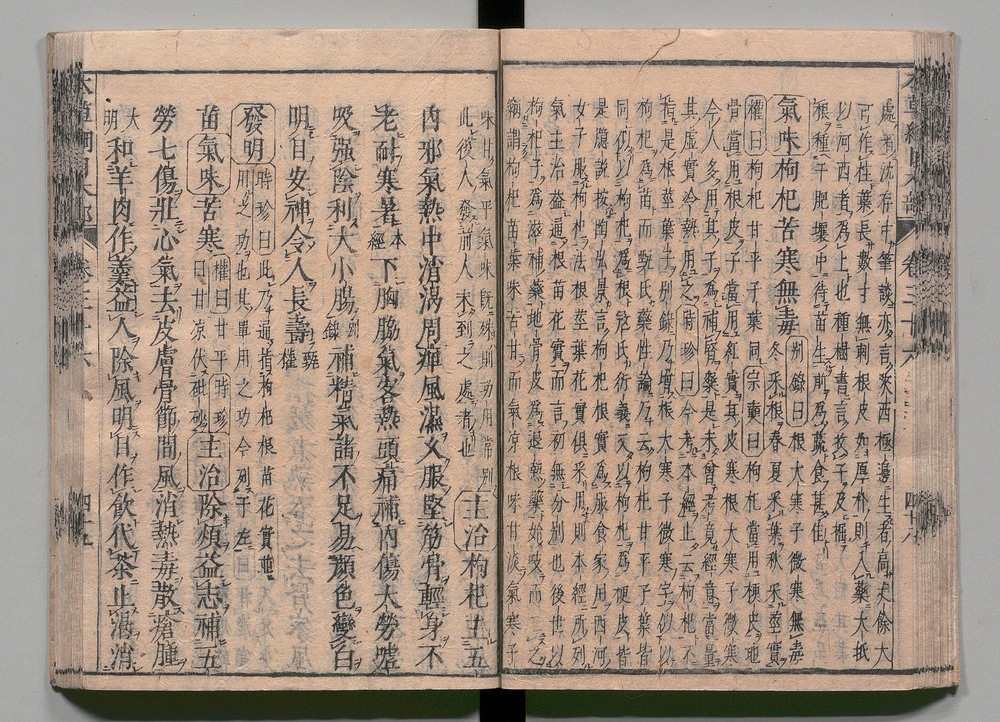 處沈存中筆談亦言陝西極邊生者高丈餘大
可作柱葉長數寸無刺根皮如厚朴則入藥大抵
以河西者為上也種樹書言收子及掘
根種于肥壤中待苗生剪為蔬食甚佳
氣味枸杞苦寒無毒別錄曰根大寒子微寒無毒
冬采根春夏采葉秋采莖實
權曰枸杞甘平子葉同宗奭曰枸杞當用梗皮地
骨當用根皮子當用紅實其皮寒根大寒子微寒
今人多用其子為補腎藥是未曾考竟經意當量
其虛實冷熱用之時珍曰今考本經止云枸杞不
指是根莖葉子別錄乃增根大寒子微寒字似以
枸杞為苗而甄氏藥性論乃云枸杞甘平子葉皆
同似以枸杞為根寇氏衍義又以枸杞為梗皮皆
是臆說按陶弘景言枸杞根實為服食家用西河
女子服枸杞法根莖葉花實俱采用則本經所列
氣主治蓋通根苗花實而言初無分別也後世以
枸杞子為滋補藥地骨皮為退熱藥始歧而二之
竊謂枸杞苗葉味苦甘而氣凉根味甘淡氣寒子
味甘氣平氣味既殊則功用當別
此後人發前人未到之處者也
主治枸杞主五
內邪氣熱中消渴周痹風濕久服堅筋骨輕身不
老耐寒暑本經下胸脇氣客熱頭痛補內傷大勞噓
吸强陰利大小腸別錄補精氣諸不足易顏色變白
明目安神令人長壽甄權
發明時珍曰此乃通指枸杞根苗花實並
用之功也其單用之功今列于左
苗氣味苦寒權曰甘平時珍
曰甘凉伏砒砂主治除煩益志補五
勞七傷壯心氣去皮膚骨節間風消熱毒散瘡腫
大明和羊肉作羹益人除風明目作飲代茶止渴消